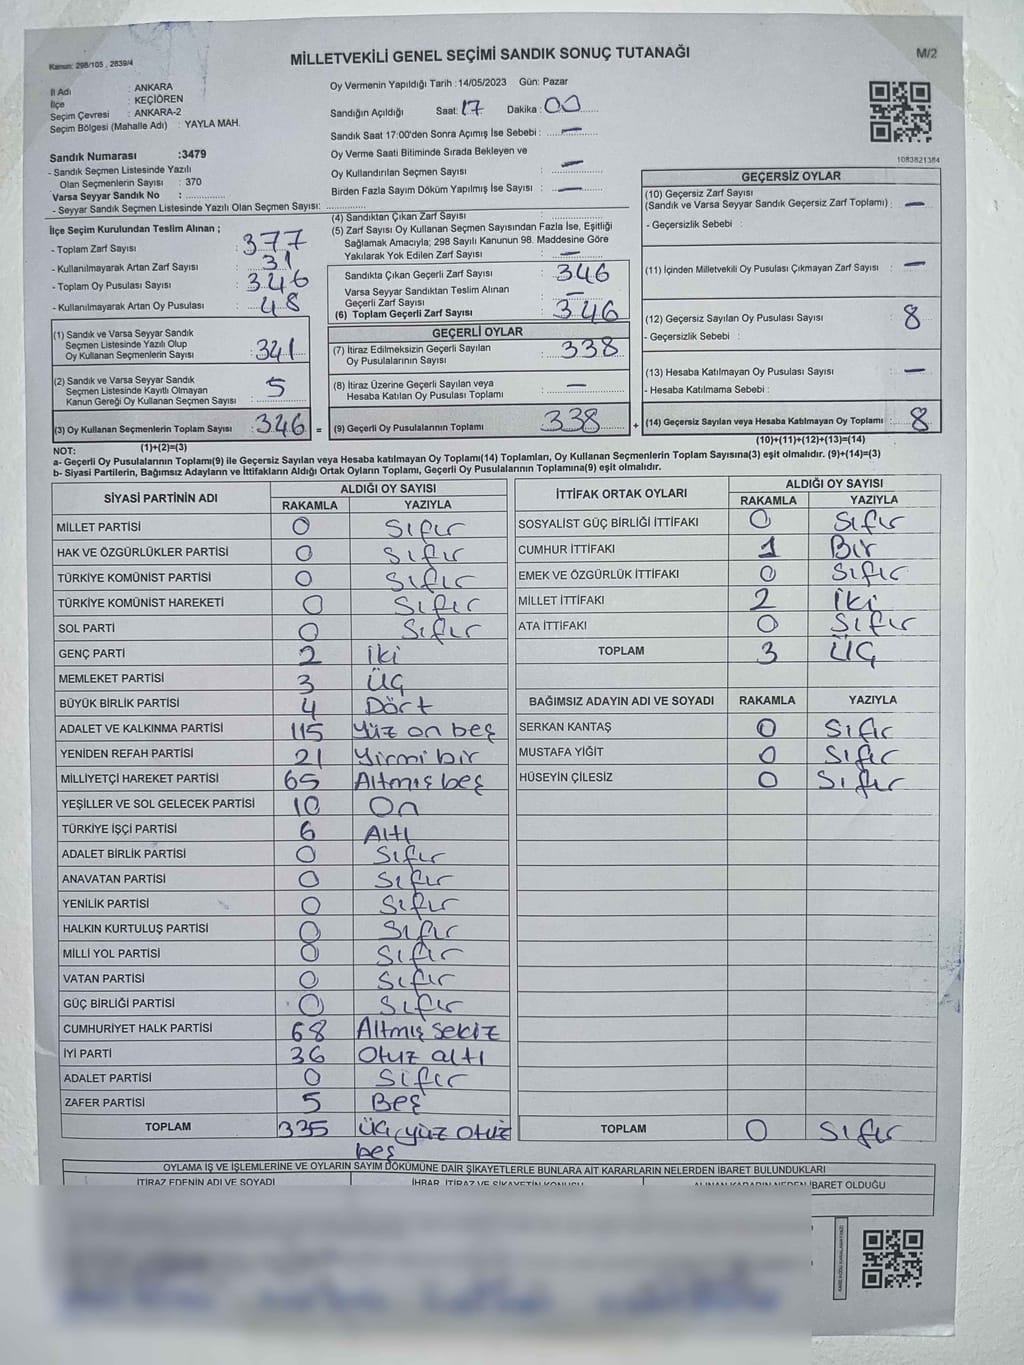 Kanun: 298/105 , 2839/4
MİLLETVEKİLİ GENEL SEÇİMİ SANDIK SONUÇ TUTANAĞI
M/2
İl Adı : ANKARA
İlçe : KEÇİÖREN
Seçim Çevresi : ANKARA-2
Seçim Bölgesi (Mahalle Adı) : YAYLA MAH.
Oy Vermenin Yapıldığı Tarih : 14/05/2023 Gün: Pazar
Sandığın Açıldığı Saat: 17 Dakika : 00
Sandık Saat 17:00'den Sonra Açımış İse Sebebi : —
Oy Verme Saati Bitiminde Sırada Bekleyen ve
Oy Kullandırılan Seçmen Sayısı : —
Birden Fazla Sayım Döküm Yapılmış İse Sayısı : —
1083821384
Sandık Numarası :3479
- Sandık Seçmen Listesinde Yazılı
Olan Seçmenlerin Sayısı : 370
Varsa Seyyar Sandık No :
- Seyyar Sandık Seçmen Listesinde Yazılı Olan Seçmen Sayısı:
İlçe Seçim Kurulundan Teslim Alınan ;
- Toplam Zarf Sayısı : 377
- Kullanılmayarak Artan Zarf Sayısı : 31
- Toplam Oy Pusulası Sayısı : 346
- Kullanılmayarak Artan Oy Pusulası : 48
(1) Sandık ve Varsa Seyyar Sandık
Seçmen Listesinde Yazılı Olup
Oy Kullanan Seçmenlerin Sayısı : 341
(2) Sandık ve Varsa Seyyar Sandık
Seçmen Listesinde Kayıtlı Olmayan
Kanun Gereği Oy Kullanan Seçmen Sayısı : 5
(3) Oy Kullanan Seçmenlerin Toplam Sayısı : 346 =
(1)+(2)=(3)
(4) Sandıktan Çıkan Zarf Sayısı :
(5) Zarf Sayısı Oy Kullanan Seçmen Sayısından Fazla İse, Eşitliği
Sağlamak Amacıyla; 298 Sayılı Kanunun 98. Maddesine Göre
Yakılarak Yok Edilen Zarf Sayısı : —
Sandıkta Çıkan Geçerli Zarf Sayısı : 346
Varsa Seyyar Sandıktan Teslim Alınan
Geçerli Zarf Sayısı : —
(6) Toplam Geçerli Zarf Sayısı : 346
GEÇERLİ OYLAR
(7) İtiraz Edilmeksizin Geçerli Sayılan
Oy Pusulalarının Sayısı : 338
(8) İtiraz Üzerine Geçerli Sayılan veya
Hesaba Katılan Oy Pusulası Toplamı : —
(9) Geçerli Oy Pusulalarının Toplamı : 338 +
GEÇERSİZ OYLAR
(10) Geçersiz Zarf Sayısı
(Sandık ve Varsa Seyyar Sandık Geçersiz Zarf Toplamı) : —
- Geçersizlik Sebebi :
(11) İçinden Milletvekili Oy Pusulası Çıkmayan Zarf Sayısı : —
(12) Geçersiz Sayılan Oy Pusulası Sayısı : 8
- Geçersizlik Sebebi :
(13) Hesaba Katılmayan Oy Pusulası Sayısı : —
- Hesaba Katılmama Sebebi :
(14) Geçersiz Sayılan veya Hesaba Katılmayan Oy Toplamı : 8
(10)+(11)+(12)+(13)=(14)
NOT:
a- Geçerli Oy Pusulalarının Toplamı(9) ile Geçersiz Sayılan veya Hesaba katılmayan Oy Toplamı(14) Toplamları, Oy Kullanan Seçmenlerin Toplam Sayısına(3) eşit olmalıdır. (9)+(14)=(3)
b- Siyasi Partilerin, Bağımsız Adayların ve İttifakların Aldığı Ortak Oyların Toplamı, Geçerli Oy Pusulalarının Toplamına(9) eşit olmalıdır.
SİYASİ PARTİNİN ADI ALDIĞI OY SAYISI
RAKAMLA YAZIYLA
MİLLET PARTİSİ 0 Sıfır
HAK VE ÖZGÜRLÜKLER PARTİSİ 0 Sıfır
TÜRKİYE KOMÜNİST PARTİSİ 0 Sıfır
TÜRKİYE KOMÜNİST HAREKETİ 0 Sıfır
SOL PARTİ 0 Sıfır
GENÇ PARTİ 2 İki
MEMLEKET PARTİSİ 3 Üç
BÜYÜK BİRLİK PARTİSİ 4 Dört
ADALET VE KALKINMA PARTİSİ 115 Yüz on beş
YENİDEN REFAH PARTİSİ 21 Yirmi bir
MİLLİYETÇİ HAREKET PARTİSİ 65 Altmış beş
YEŞİLLER VE SOL GELECEK PARTİSİ 10 On
TÜRKİYE İŞÇİ PARTİSİ 6 Altı
ADALET BİRLİK PARTİSİ 0 Sıfır
ANAVATAN PARTİSİ 0 Sıfır
YENİLİK PARTİSİ 0 Sıfır
HALKIN KURTULUŞ PARTİSİ 0 Sıfır
MİLLİ YOL PARTİSİ 0 Sıfır
VATAN PARTİSİ 0 Sıfır
GÜÇ BİRLİĞİ PARTİSİ 0 Sıfır
CUMHURİYET HALK PARTİSİ 68 Altmış sekiz
İYİ PARTİ 36 Otuz altı
ADALET PARTİSİ 0 Sıfır
ZAFER PARTİSİ 5 Beş
TOPLAM 335 Üç yüz otuz
beş
İTTİFAK ORTAK OYLARI ALDIĞI OY SAYISI
RAKAMLA YAZIYLA
SOSYALİST GÜÇ BİRLİĞİ İTTİFAKI 0 Sıfır
CUMHUR İTTİFAKI 1 Bir
EMEK VE ÖZGÜRLÜK İTTİFAKI 0 Sıfır
MİLLET İTTİFAKI 2 İki
ATA İTTİFAKI 0 Sıfır
TOPLAM 3 Üç
BAĞIMSIZ ADAYIN ADI VE SOYADI RAKAMLA YAZIYLA
SERKAN KANTAŞ 0 Sıfır
MUSTAFA YİĞİT 0 Sıfır
HÜSEYİN ÇİLESİZ 0 Sıfır
TOPLAM 0 Sıfır
OYLAMA İŞ VE İŞLEMLERİNE VE OYLARIN SAYIM DÖKÜMÜNE DAİR ŞİKAYETLERLE BUNLARA AİT KARARLARIN NELERDEN İBARET BULUNDUKLARI
İTİRAZ EDENİN ADI VE SOYADI İHBAR, İTİRAZ VE ŞİKAYETİN KONUSU ALINAN KARARIN NEDEN İBARET OLDUĞU